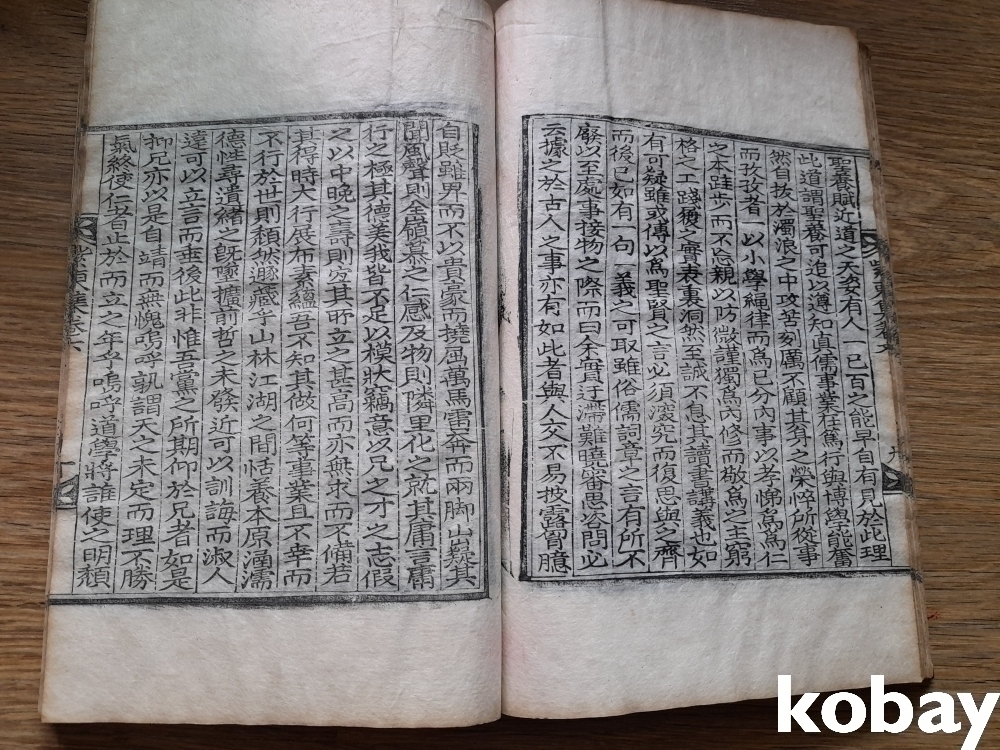 聖養賦近道之天姿有人一己百之能早自有見於此理
此道謂聖養可追以遵知真儒事業在篤行與博學能奮
然自拔於濁浪之中攻苦刻厲不顧其身之榮悴所從事
而孜孜者一以小學編律而爲己分內事以孝悌爲爲仁
之本跬步而不忘親以防微謹獨爲內修而敬爲之主窮
格之工踐履之實表裏洞然至誠不息其讀書講義也如
有可疑雖或傳以爲聖賢之言必須深究而復思與之齊
而後已如有一句一義之可取雖俗儒詞章之言有所不
廢以至處事接物之際而曰余實迂滯難曉審思咨問必
云據之於古人之事亦有如此者與人交不易披露胷臆
自貶雖男而不以貴豪而撓屈萬馬雷奔而兩脚山嶷其
聞風聲則僉願慕之仁感及物則隣里化之就其庸言庸
行之極其德美我皆不足以模狀竊意以兄之才之志假
之以中晚之壽則究其所立之甚高而亦無求而不備若
其得時大行展布素蘊吾不知其做何等事業且不幸而
不行於世則頹然遯藏乎山林江湖之間恬養本原涵濡
德性尋遺緒之旣墜擴前哲之未發近可以訓誨而淑人
遠可以立言而垂後此非惟吾黨之所期仰於兄者如是
抑兄亦以是自靖而無愧嗚呼孰謂天之未定而理不勝
氣終使仁者止於而立之年乎嗚呼道學將誰使之明頹
kobay